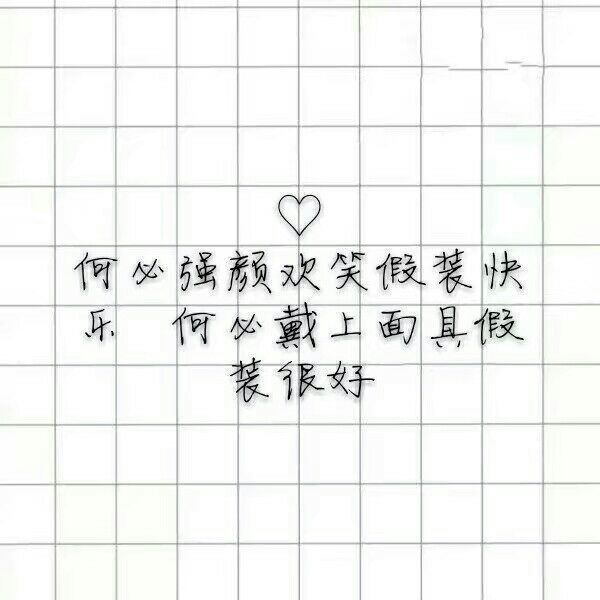 何必强颜欢笑假装快
乐 何必戴上面具假
装很好